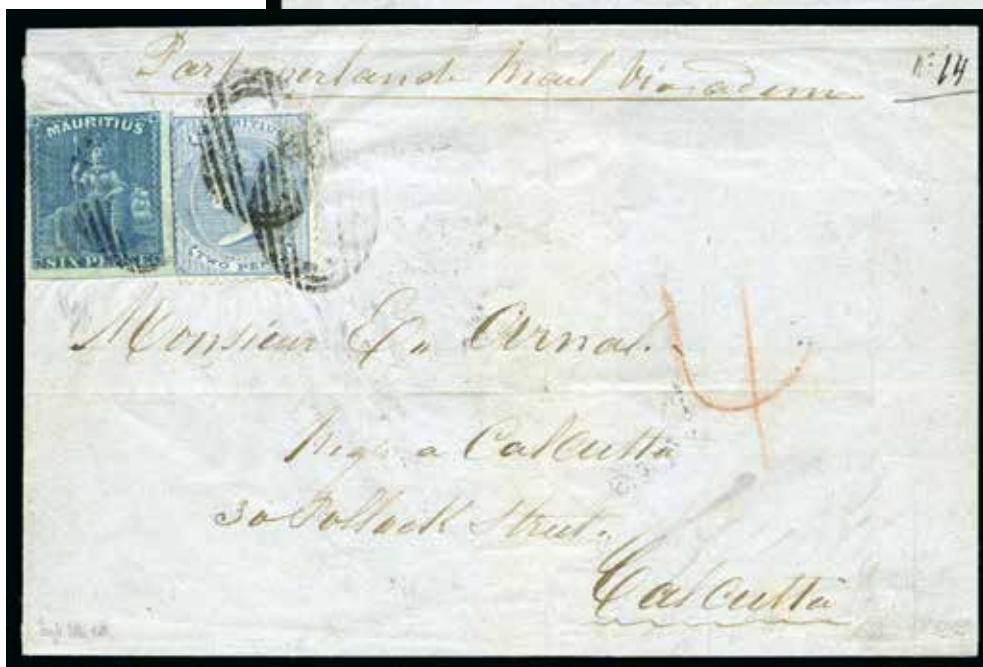 Par overland Mail Via aden
N° 14
MAURITIUS
SIX PENCE
MAURITIUS
TWO PENCE
Monsieur Ed. Arnal.
Negt a Calcutta
30 Pollock Street.
Calcutta
4